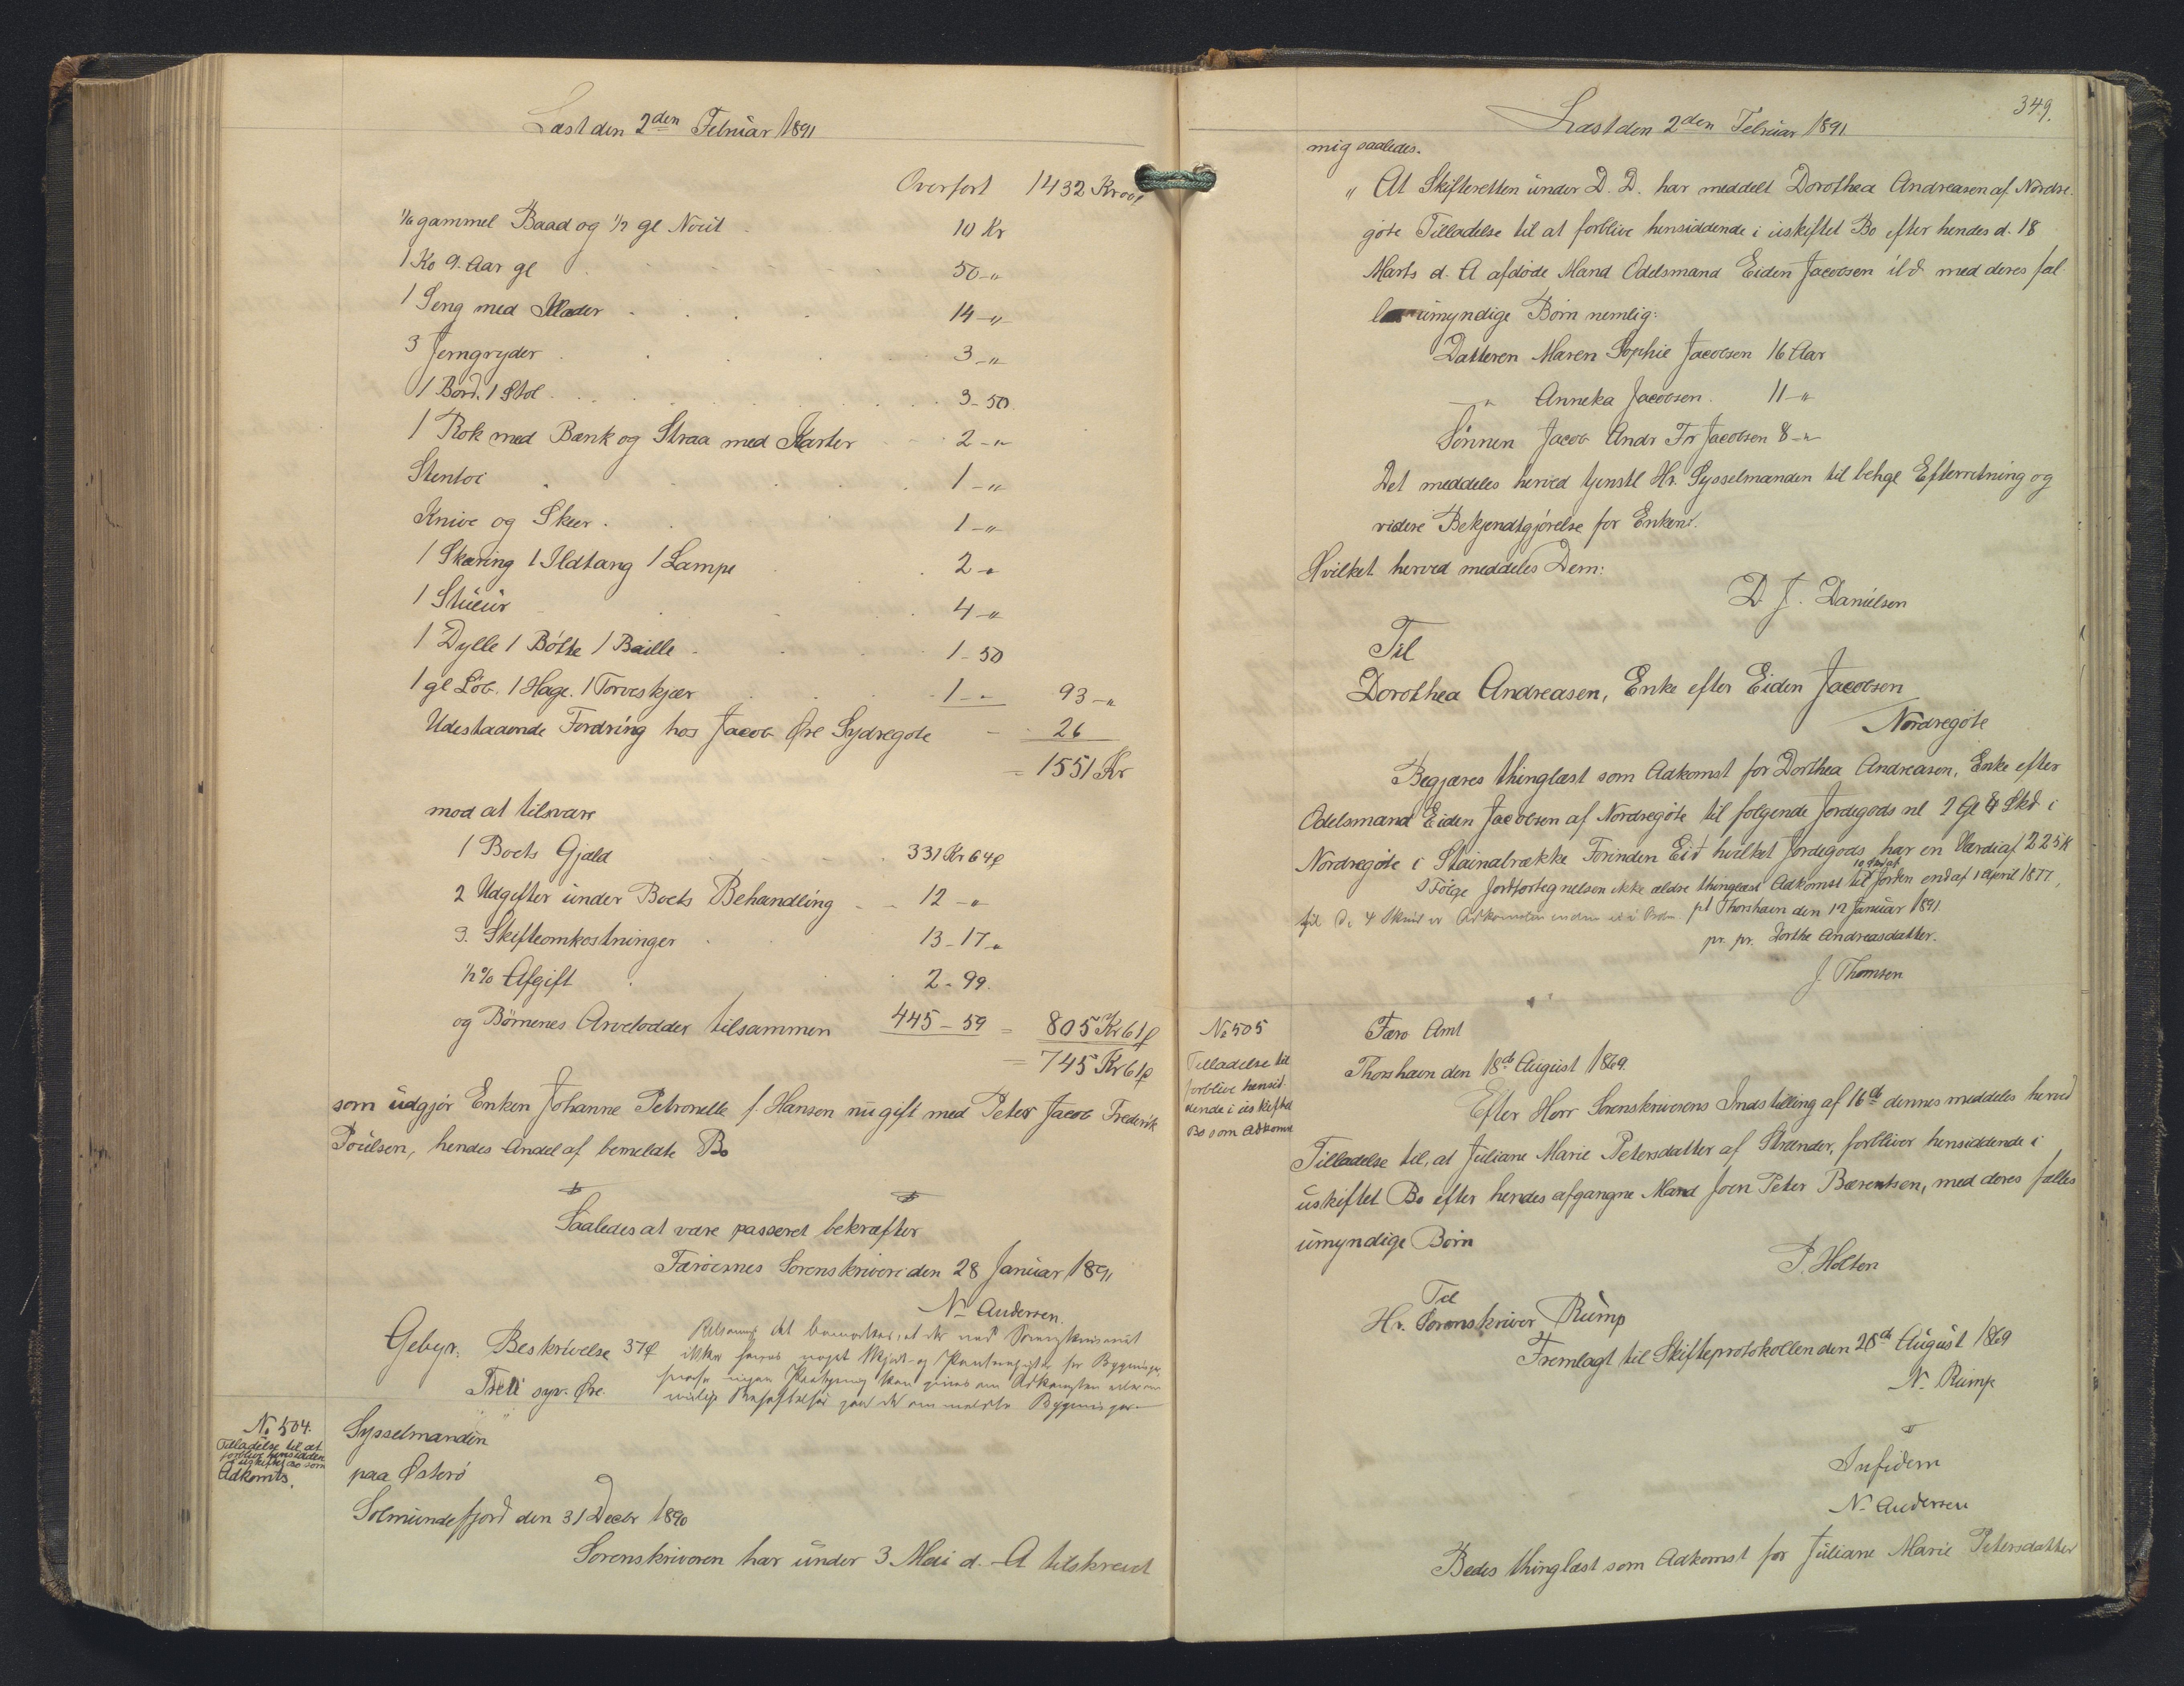 Læst den 2den Februar 1891
Overført 1432 Kr 00
1/6 gammel Baad og 1/2 gl Nóut 10 Kr
1 Ko 9. Aar gl 50 - "
1 Seng med Klæder 14 - "
3 Jerngryder 3 - "
1 Bord. 1 Stol 3 - 50
1 Rok med Bænk og Straa med Karter 2 - "
Stentöi 1 - "
Knive og Skeer 1 - "
1 Skæring 1 Ildtang 1 Lampe 2 - "
1 Stueur 4 - "
1 Dylle 1 Bótte 1 Baille 1 - 50
1 gl Löb. 1 Hage. 1 Torveskjær 1 - " 93 - "
Udestaaende Fordring hos Jacob Øre Sydregöte - 26
= 1551 Kr
mod at tilsvare
1 Boets Gjæld 331 Kr 64 ø
2 Udgifter under Boets Behandling - 12 - "
3. Skifteomkostninger 13 - 17 "
1/2 % Afgift 2 - 99.
og Börnenes Arvelodder tilsammen 445 - 59 = 805 Kr 61 ø
= 745 Kr 61 ø
som udgjör Enken Johanne Petronelle f. Hansen nu gift med Peter Jacob Frederik
Poulsen, hendes Andel af bemeldte Bo
Saaledes at være passeret bekræfter
Færöernes Sorenskriveri den 28 Januar 1891
N. Andersen.
Gebyr. Beskrivelse 37 ø
Tredi syv Øre.
det bemærkes, at der ved Sorenskriveriet
ikke haves noget Skjöde- og Panteregister for Bygninger,
hvorfor ingen kan gives om Adkomsten eller om
mulige Behæftelser paa de ommeldte Bygninger
No 504.
Tilladelse til at
forblive hensidden
i uskiftet Bo som
Adkomts.
Sysselmanden
paa Østerö
Solmundefjord den 31 Decbr 1890
Sorenskriveren har under 3 Mai d. A tilskrevet
349.
Læst den 2den Februar 1891
mig saaledes.
" At Skifteretten under D. D. har meddelt Dorothea Andreasen af Nordre-
göte Tilladelse til at forblive hensiddende i uskiftet Bo efter hendes d. 18
Marts d. A afdöde Mand Odelsmand Eiden Jacobsen ibd med deres fæl-
les umyndige Börn nemlig:
Datteren Maren Sophie Jacobsen 16 Aar
— " Anneka Jacobsen. 11 - "
Sönnen Jacob Andr Fr Jacobsen 8 - "
Det meddeles herved tjenstl Hr. Sysselmanden til behgl Efterretning og
videre Bekjendtgjörelse for Enken".
Hvilket herved meddeles Dem:
D. J. Danielsen
Til
Dorothea Andreasen, Enke efter Eiden Jacobsen
Nordregöte
Begjæres thinglæst som Adkomst for Dorthea Andreasen, Enke efter
Odelsmand Eiden Jacobsen af Nordregöte til fölgende Jordegods nl 2 Gl 4 Skd i
Nordregöte i Stainabrække Forinden Eid hvilket Jordegods har en Værdi af 225 K
I Fölge Jordfortegnelsen ikke ældre thinglæst Adkomst til 10 Skd af Jorden end af 1 April 1877,
til de 4 Skind er Adkomsten endnu
pt Thorshavn den 12 Januar 1891.
pr. pr. Dorthe Andreasdatter.
J. Thomsen
No 505
Tilladelse til
forblive hensid-
dende i uskiftet
Bo som Adkomst
Færö Amt
Thorshavn den 18de August 1869.
Efter Herr Sorenskriverens Indstilling af 16de dennes meddeles herved
Tilladelse til, at Juliane Marie Petersdatter af Strænder, forbliver hensiddende i
uskiftet Bo efter hendes afgangne Mand Joen Peter Bærentsen, med deres fælles
umyndige Börn
P. Holten
Til
Hr. Sorenskriver Rump
Fremlagt til Skifteprotokollen den 28de August 1869
N. Rump
In fidem
N. Andersen
Bedes thinglæst som Adkomst for Juliane Marie Petersdatter